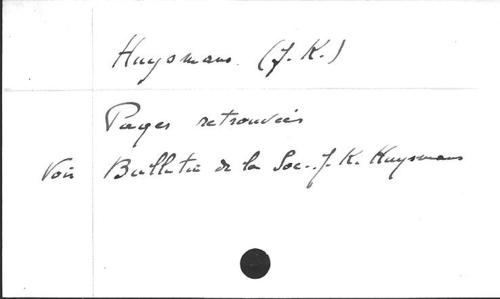 Huysmans. (J. K.)
Pages retrouvées
Voir Bulletin de la Soc. J. K. Huysmans